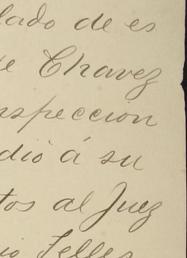 lado de es
e Chavez
nspeccion
dió á su
tos al Juez
io Telles